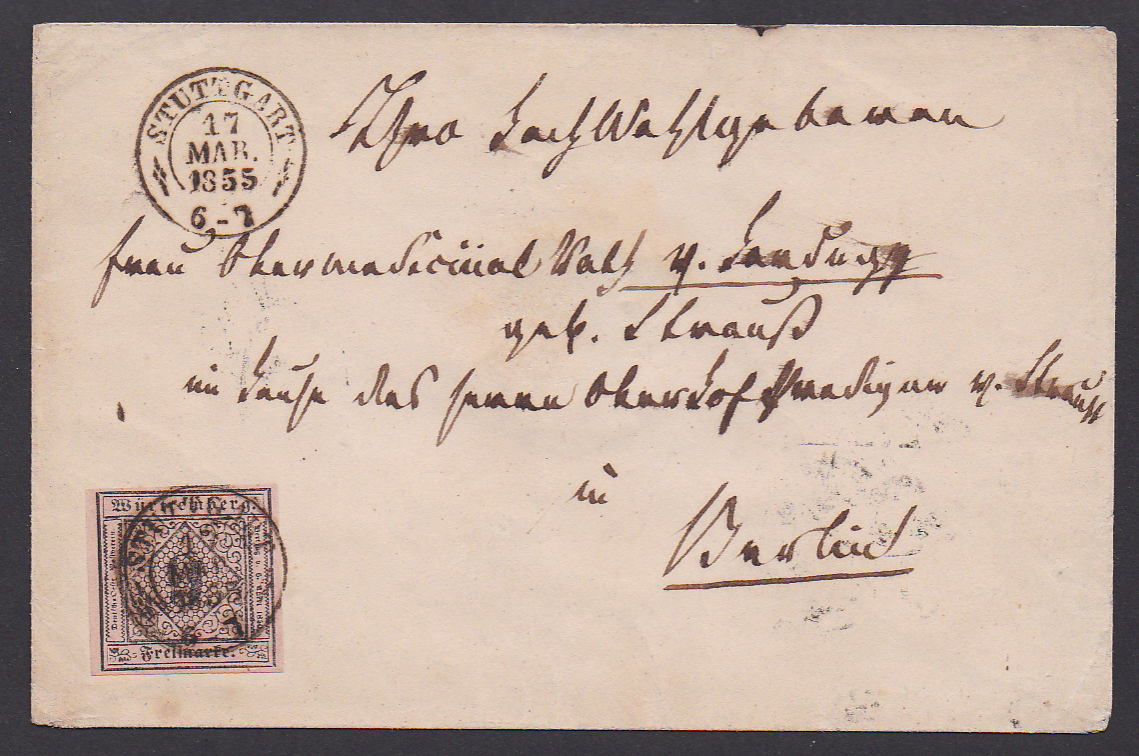 STUTTGART
17
MAR.
1855
6-7
Ihro HochWohlgeboren
Frau Obermedicinal Rath v.
geb. Strauß
im Hause des Herrn Oberhofpredigers v. Strauß
in
Berlin
Württemberg.
Freimarke.